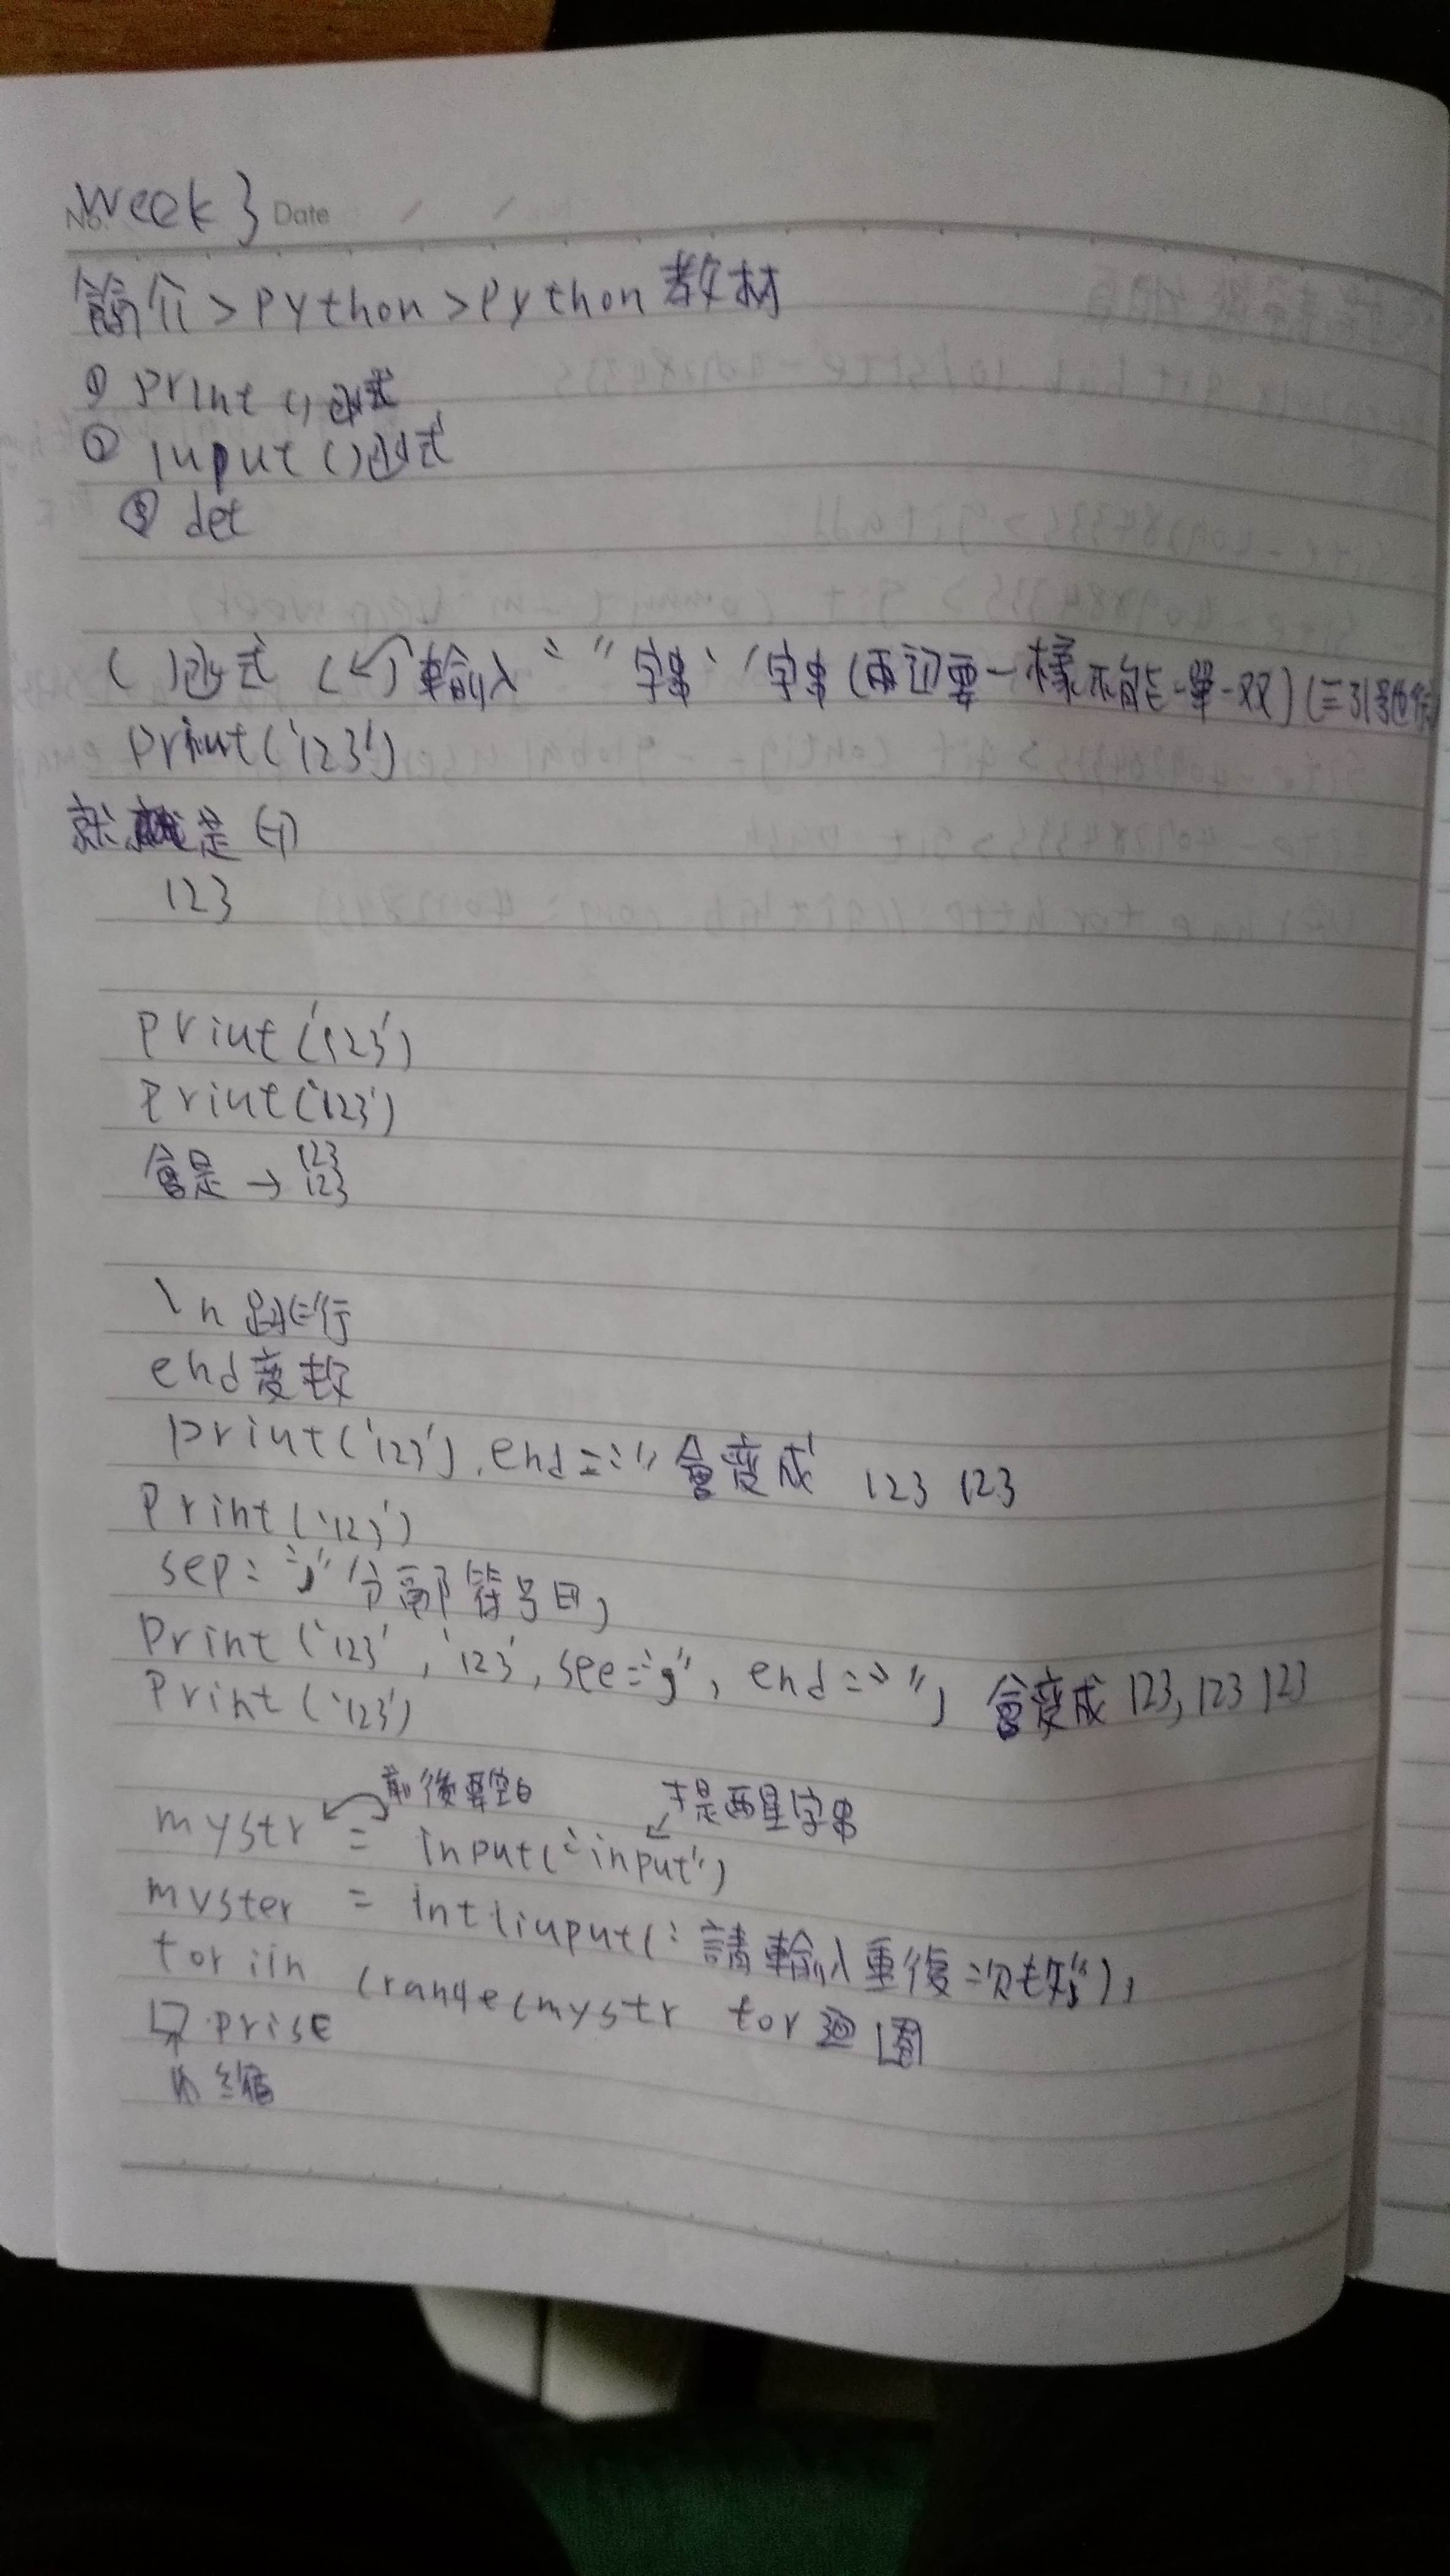 Week 3
No. Date / /
簡介 > Python > Python 教材
① Print () 函式
② input () 函式
③ def
( ) 函式 ( ) 輸入 " " 字串 ' ' 字串 (兩邊要一樣不能一單一双) (三引號也
print('123')
就是印
123
print('123')
Print('123')
會是 → 123
123
\n 跳行
end 變數
print('123'), end = " " 會變成 123 123
Print('123')
sep = "," 分隔符号用,
Print('123', '123', see = ",", end = " ", 會變成 123, 123 123
Print('123')
前後要空白 才是要字串
mystr = input("input")
myster = int(iuput("請輸入重復次数"),
for iin (range(mystr for 迴圈
print
內縮